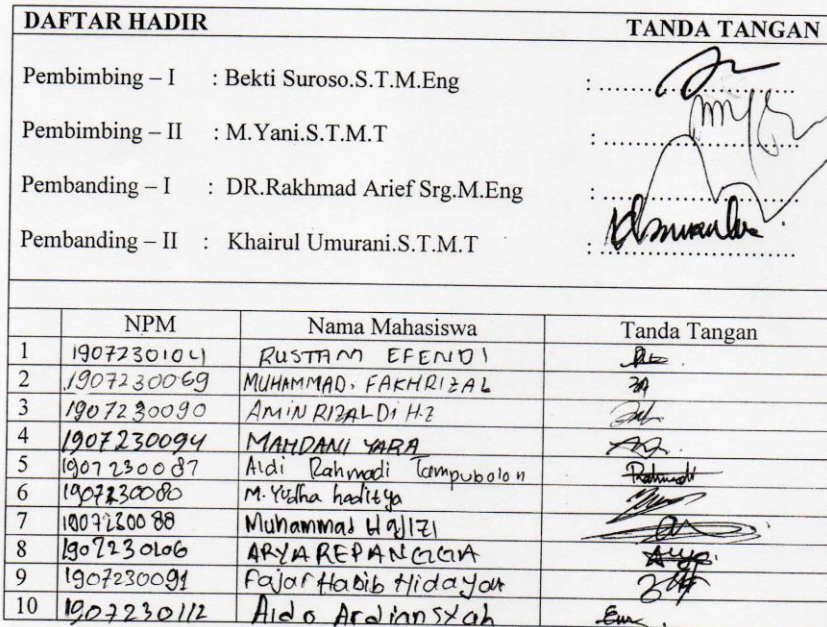 DAFTAR HADIR TANDA TANGAN
Pembimbing – I : Bekti Suroso.S.T.M.Eng : ....................
Pembimbing – II : M.Yani.S.T.M.T : ....................
Pembanding – I : DR.Rakhmad Arief Srg.M.Eng : ....................
Pembanding – II : Khairul Umurani.S.T.M.T : ....................
NPM Nama Mahasiswa Tanda Tangan
1 1907230104 RUSTAM EFENDI
2 1907230069 MUHAMMAD. FAKHRIZAL
3 1907230090 AMIN RIZALDI HZ
4 1907230094 MAHDANI YARA
5 1907230087 Aldi Rahmadi Tampubolon Rahmadi
6 1907230080 M. Yudha haditya
7 1907230088 Muhammad
8 1907230106 ARYA REPANGGA
9 1907230091 Fajar Habib Hidayat
10 1907230112 Aldo Ardiansyah